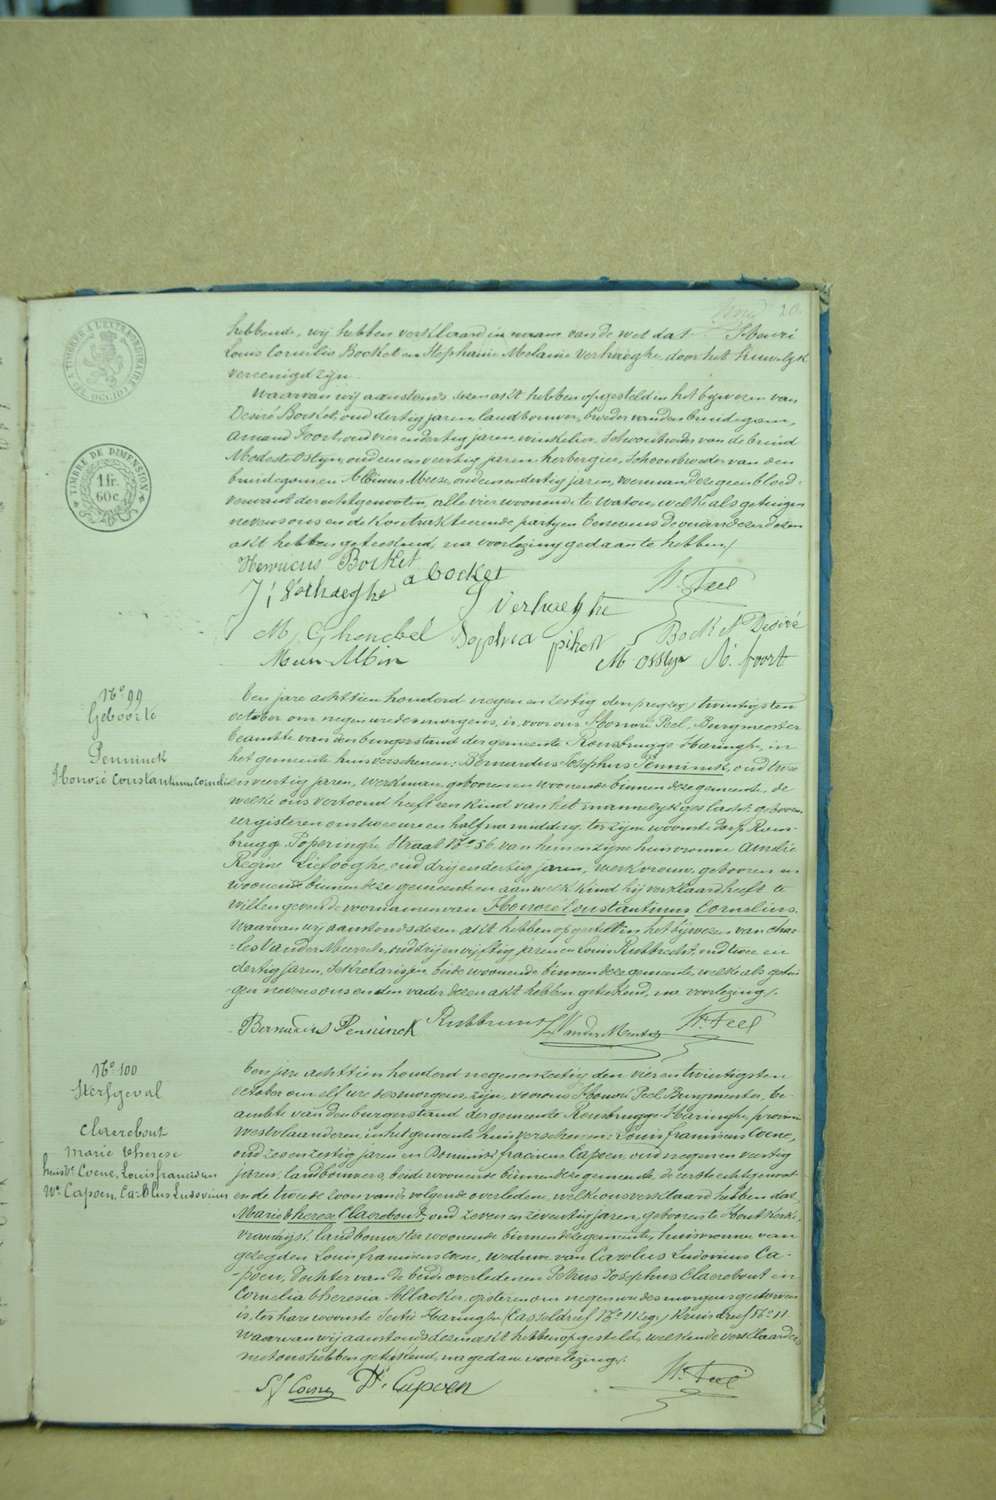 20
hebbende, wij hebben verklaard in naam van de wet dat Henri
Louis Cornelis Bocket en Stephanie Melanie Verhaeghe door het huwelijk
vereenigd zijn.
Waarvan wij aanstonds dezen akt hebben opgesteld in het bijwezen van
Desiré Bocket, oud dertig jaren, landbouwer, broeder van den bruidegom,
Amand Foort, oud vier en dertig jaren, winkelier, schoonbroeder van de bruid
Modest Osslyn, oud een en veertig jaren, herbergier, schoonbroeder van den
bruidegom en Albinus Meeze, oud en dertig jaren, geen bloed-
verwant der echtgenooten, alle vier woonende te Watou, welke als getuigen
nevens ons en de kontrakteerende partyen benevens de dezen
akt hebben geteekend, na voorlezing gedaan te hebben /
TIMBRE DE DIMENSION
1 fr.
60 c.
Henricus Bocket
Bocket
Verhaeghe
S Verhaeghe
H. Peel
M, Ghenebel Sophia pihen
Bocket Desiré
Albin
M osslyn A. foort
N° 99
Geboorte
Penninck
Honoré Constantinus Cornelis
Een jare achttien honderd negen en zestig den twintigsten
october om negen ure des morgens, is voor ons Honoré Peel, Burgmeester
beambte van den burgerstand der gemeente Rousbrugge-Haringhe, in
het gemeente huis verschenen: Bernardus Josephus Penninck, oud twee
en veertig jaren, werkman, geboren en woonende binnen deze gemeente, de
welke ons vertoond heeft een kind van het mannelyk geslacht, geboren
eergisteren om twee ure en half na middag, ter zijne woonste dorp Rous-
brugge Poperinge straat N° 56, van hem en zyne huisvrouw Amelie
Regine Liefooghe, oud dry en dertig jaren, werkvrouw, geboren en
woonende binnen deze gemeente en aan welk kind hij verklaard heeft te
willen geven de voornamen van Honoré Constantinus Cornelius.
Waarvan wy aanstonds dezen akt hebben opgesteld in het bijwezen van Char-
les Vander Meersch, oud dry en vyftig jaren en Louis Rubbrecht, oud twee en
dertig jaren, sekretarissen, beide woonende binnen deze gemeente, welke als getui-
gen nevens ons en den vader dezen akt hebben geteekend, na voorlezing /.
Bernardus Penninck
H. Peel
N° 100
Sterfgeval
Claerebout
Marie Therese
huisvr Coene, Louis franciscus
We Capoen, Carolus Ludovicus
Een jare achttien honderd negen en zestig den vier en twintigsten
october om elf ure des morgens zijn, voor ons Honoré Peel Burgmeester, be-
ambte van den burgerstand der gemeente Rousbrugge-Haringhe, provin
westvlaanderen, in het gemeente huis verschenen: Louis franciscus Coene,
oud zes en zestig jaren en Dominicus franciscus Capoen, oud negen en veertig
jaren, landbouwers, beide woonende binnen deze gemeente, de eerste echtgenoot
en de tweede zoon van de volgende overledene, welke ons verklaard hebben dat
Marie therese Claerebout, oud zeven en zeventig jaren, geboren te Houtkerke
vrankrijk, landbouwster woonende binnen deze gemeente, huisvrouw van
gezegden Louis franciscus Coene, weduwe van Carolus Ludovicus Ca-
poen, dochter van de beide overledenen Petrus Josephus Claerebout en
Cornelia theresia gisteren om negen ure des morgens gestorven
is, ter hare woonste sectie Haringhe, N° 11
Waarvan wij aanstonds dezen akt hebben opgesteld, welken de verklaarders
met ons hebben geteekend, na gedane voorlezing /.
Coene D. Capoen
H. Peel